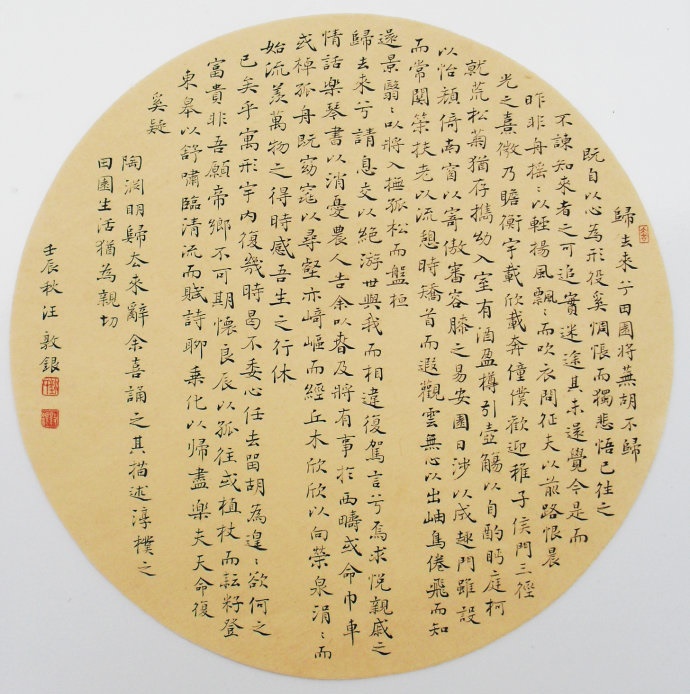 歸去來兮田園將蕪胡不歸
既自以心為形役奚惆悵而獨悲悟已往之
不諫知來者之可追實迷途其未遠覺今是而
昨非舟搖〻以輕揚風飄〻而吹衣問征夫以前路恨晨
光之熹微乃瞻衡宇載欣載奔僮僕歡迎稚子侯門三徑
就荒松菊猶存攜幼入室有酒盈樽引壺觴以自酌眄庭柯
以怡顏倚南窗以寄傲審容膝之易安園日涉以成趣門雖設
而常關策扶老以流憩時矯首而遐觀雲無心以出岫鳥倦飛而知
還景翳〻以將入撫孤松而盤桓
歸去來兮請息交以絕游世與我而相違復駕言兮焉求悅親戚之
情話樂琴書以消憂農人告余以春及將有事於西疇或命巾車
或棹孤舟既窈窕以尋壑亦崎嶇而經丘木欣欣以向榮泉涓〻而
始流羨萬物之得時感吾生之行休
已矣乎寓形宇內復幾時曷不委心任去留胡為遑〻欲何之
富貴非吾願帝鄉不可期懷良辰以孤往或植杖而耘耔登
東皋以舒嘯臨清流而賦詩聊乘化以歸盡樂夫天命復
奚疑
陶淵明歸去來辭余喜誦之其描述淳樸之
田園生活猶為親切
壬辰秋汪敦銀